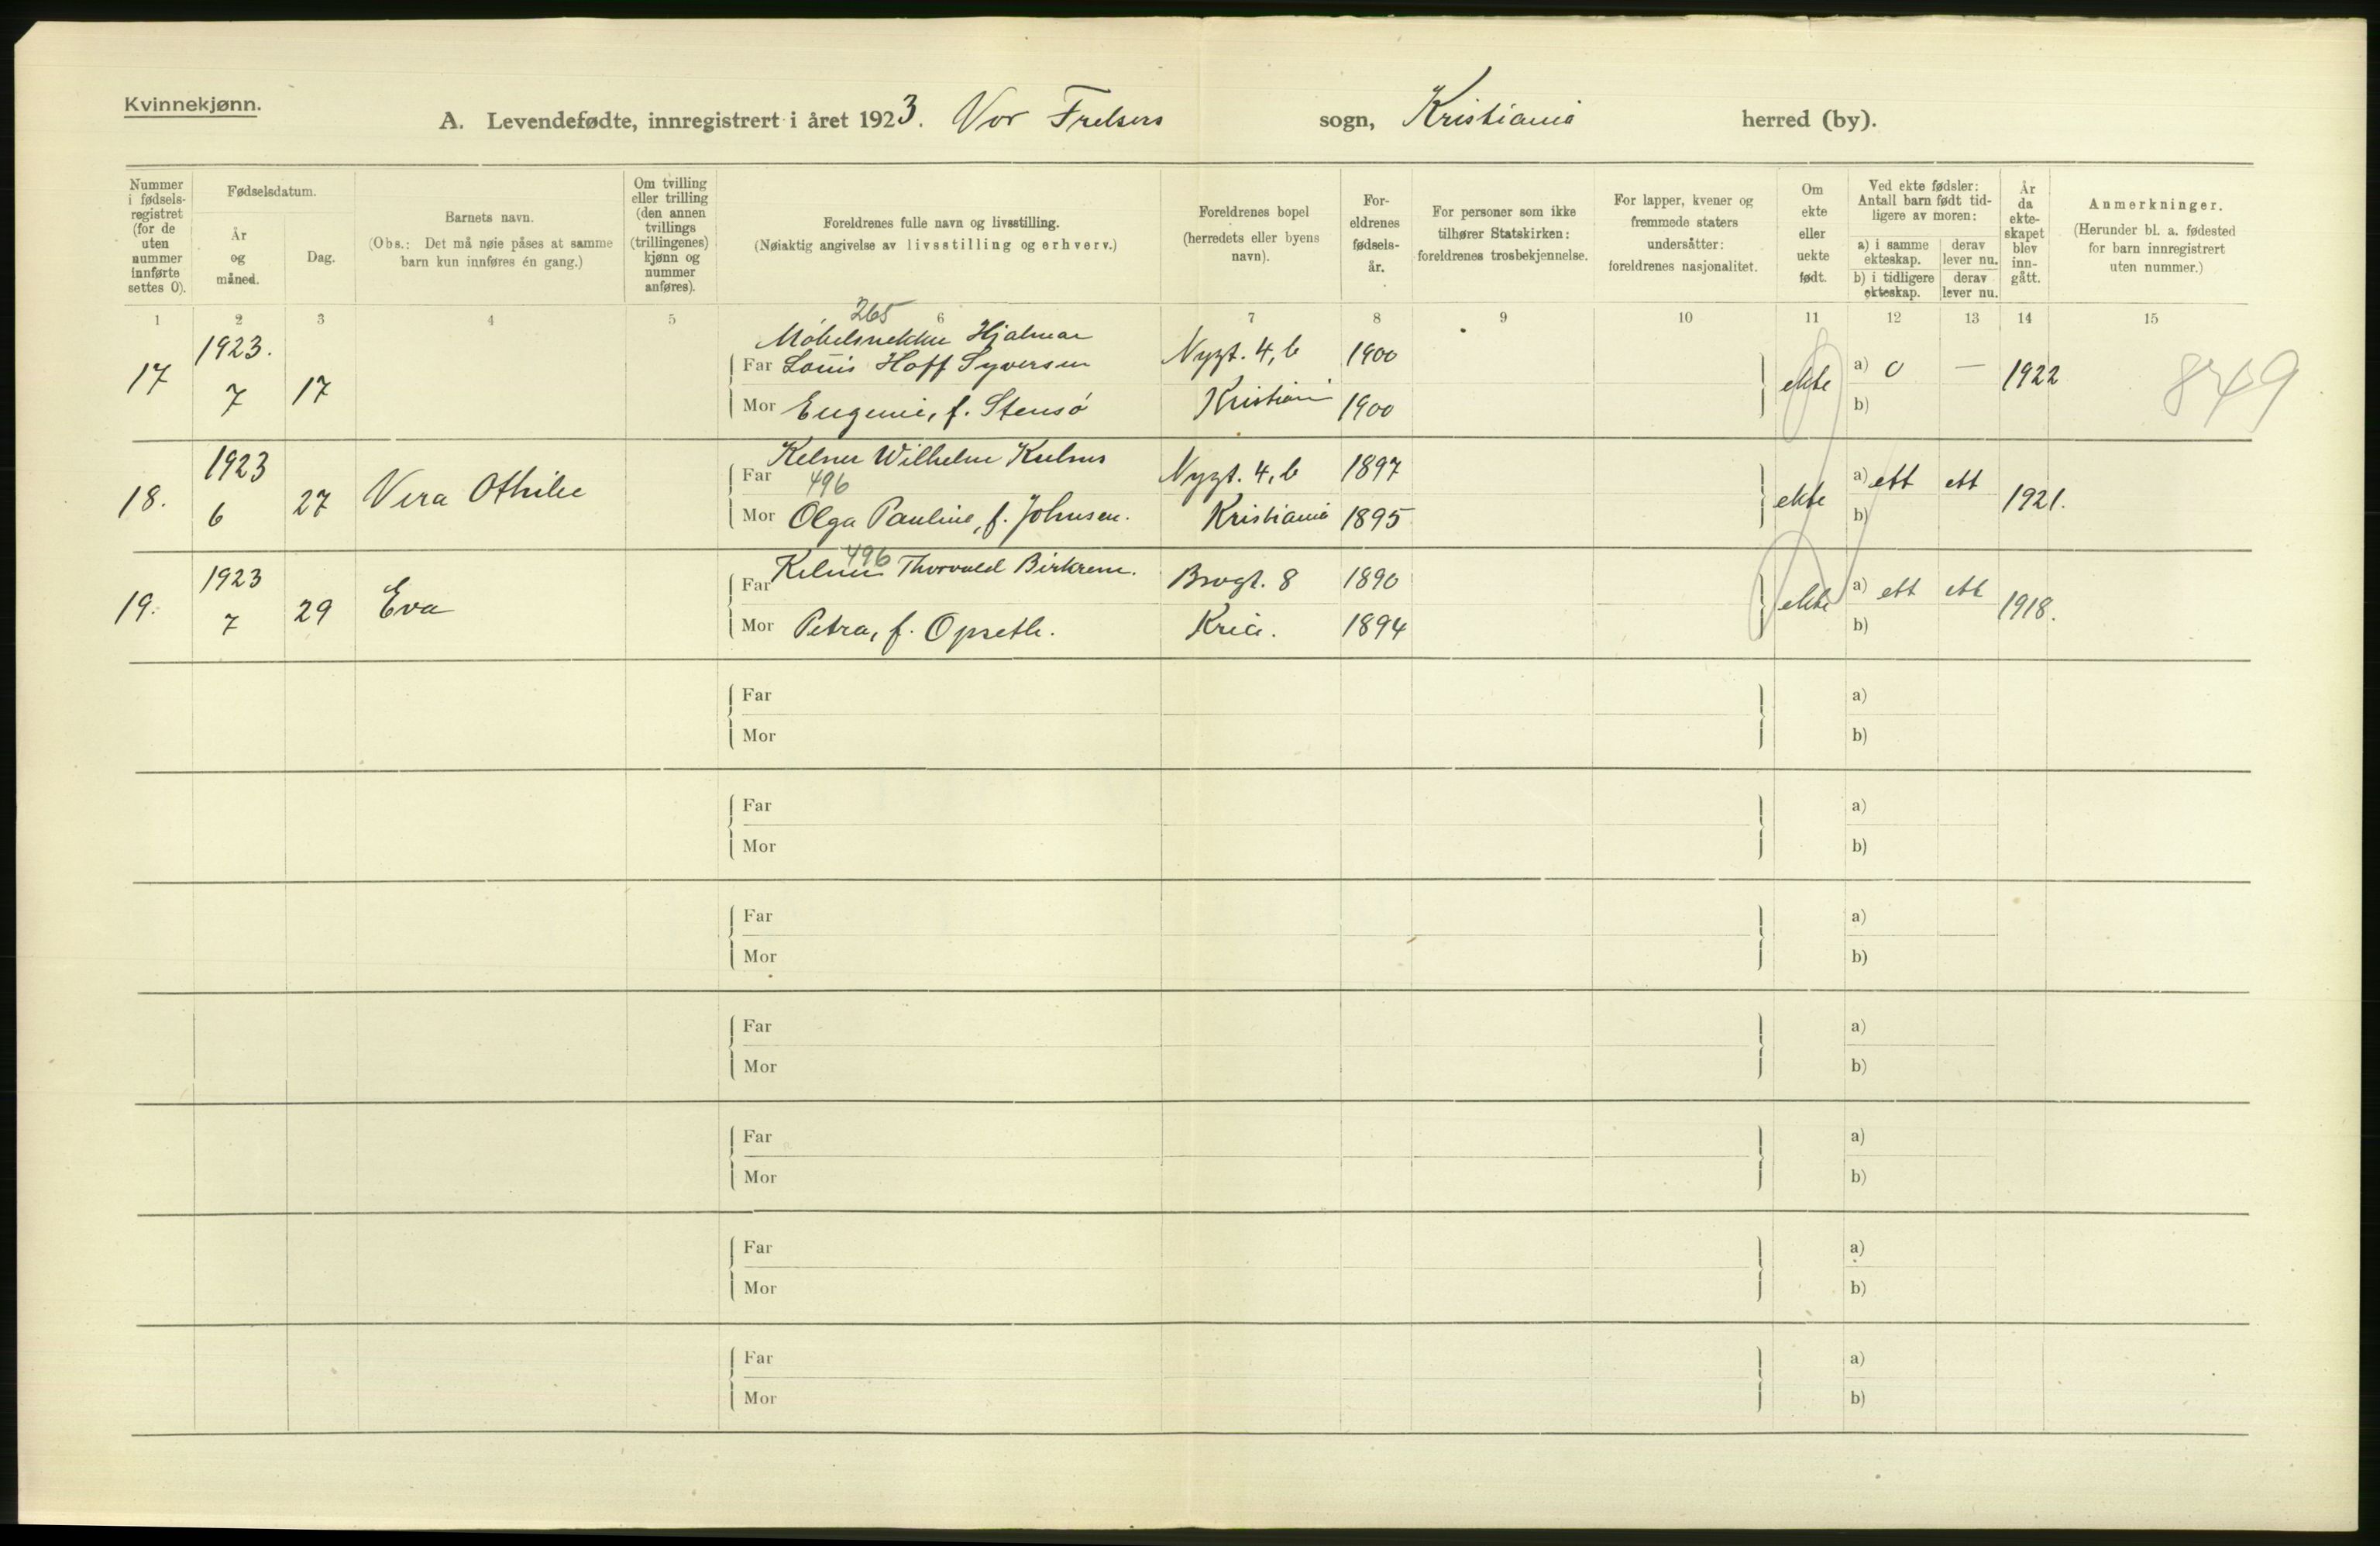 Kvinnekjønn.
A. Levendefødte, innregistrert i året 1923. Vor Frelsers sogn, Kristiania herred (by).
Nummer i fødselsregistret (for de uten nummer innførte settes 0).
Fødselsdatum.
År og måned.
Dag.
Barnets navn.
(Obs.: Det må nøie påses at samme barn kun innføres én gang.)
Om tvilling eller trilling (den annen tvillings (trillingenes) kjønn og nummer anføres).
Foreldrenes fulle navn og livsstilling.
(Nøiaktig angivelse av livsstilling og erhverv.)
Foreldrenes bopel (herredets eller byens navn).
Foreldrenes fødselsår.
For personer som ikke tilhører Statskirken: foreldrenes trosbekjennelse.
For lapper, kvener og fremmede staters undersåtter: foreldrenes nasjonalitet.
Om ekte eller uekte født.
Ved ekte fødsler: Antall barn født tidligere av moren:
a) i samme ekteskap.
derav lever nu.
b) i tidligere ekteskap.
derav lever nu.
År da ekteskapet blev inngått.
Anmerkninger.
(Herunder bl. a. fødested for barn innregistrert uten nummer.)
1 2 3 4 5 6 7 8 9 10 11 12 13 14 15
265
17 1923. 7 17
Møbelsnekker Hjalmar
Far Louis Hoff Syversen Nygt. 4, b 1900
Mor Eugenie, f. Stensø Kristiania 1900
ekte a) 0 — 1922
b)
8749
18. 1923 6 27 Vera Othilie
Kelner Wilhelm
Far 496 Nygt. 4, b 1897
Mor Olga Pauline, f. Johnsen. Kristiania 1895
ekte a) ett ett 1921.
b)
19. 1923 7 29 Eva
496
Far Kelner Thorvald Birkrem. Brogt. 8 1890
Mor Petra, f. Opseth. Kria. 1894
ekte a) ett ett 1918.
b)
Far a)
Mor b)
Far a)
Mor b)
Far a)
Mor b)
Far a)
Mor b)
Far a)
Mor b)
Far a)
Mor b)
Far a)
Mor b)